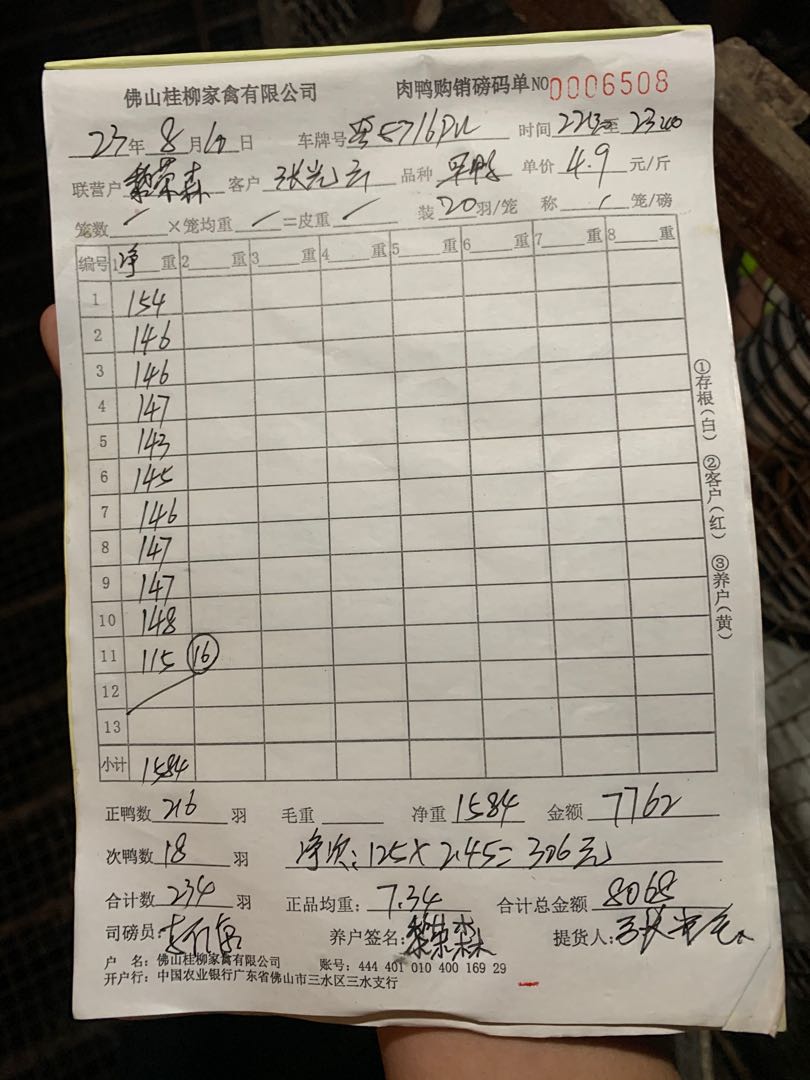 佛山桂柳家禽有限公司 肉鸭购销磅码单 NO 0006508
23年8月10日 车牌号 时间 至
联营户 黎荣森 客户 张光 品种 单价 4.9 元/斤
笼数 / ×笼均重 / =皮重 / 装 20 羽/笼 称 / 笼/磅
编号 1 净 重 2 重 3 重 4 重 5 重 6 重 7 重 8 重
1 154
2 146
3 146
4 147
5 143
6 145
7 146
8 147
9 147
10 148
11 115 16
12
13
小计 1584
正鸭数 216 羽 毛重 净重 1584 金额 7762
次鸭数 18 羽 净次:125×2.45=306元
合计数 234 羽 正品均重: 7.34 合计总金额 8068
司磅员: 养户签名: 黎荣森 提货人:
户 名:佛山桂柳家禽有限公司 账号:444 401 010 400 169 29
开户行:中国农业银行广东省佛山市三水区三水支行
①存根(白) ②客户(红) ③养户(黄)